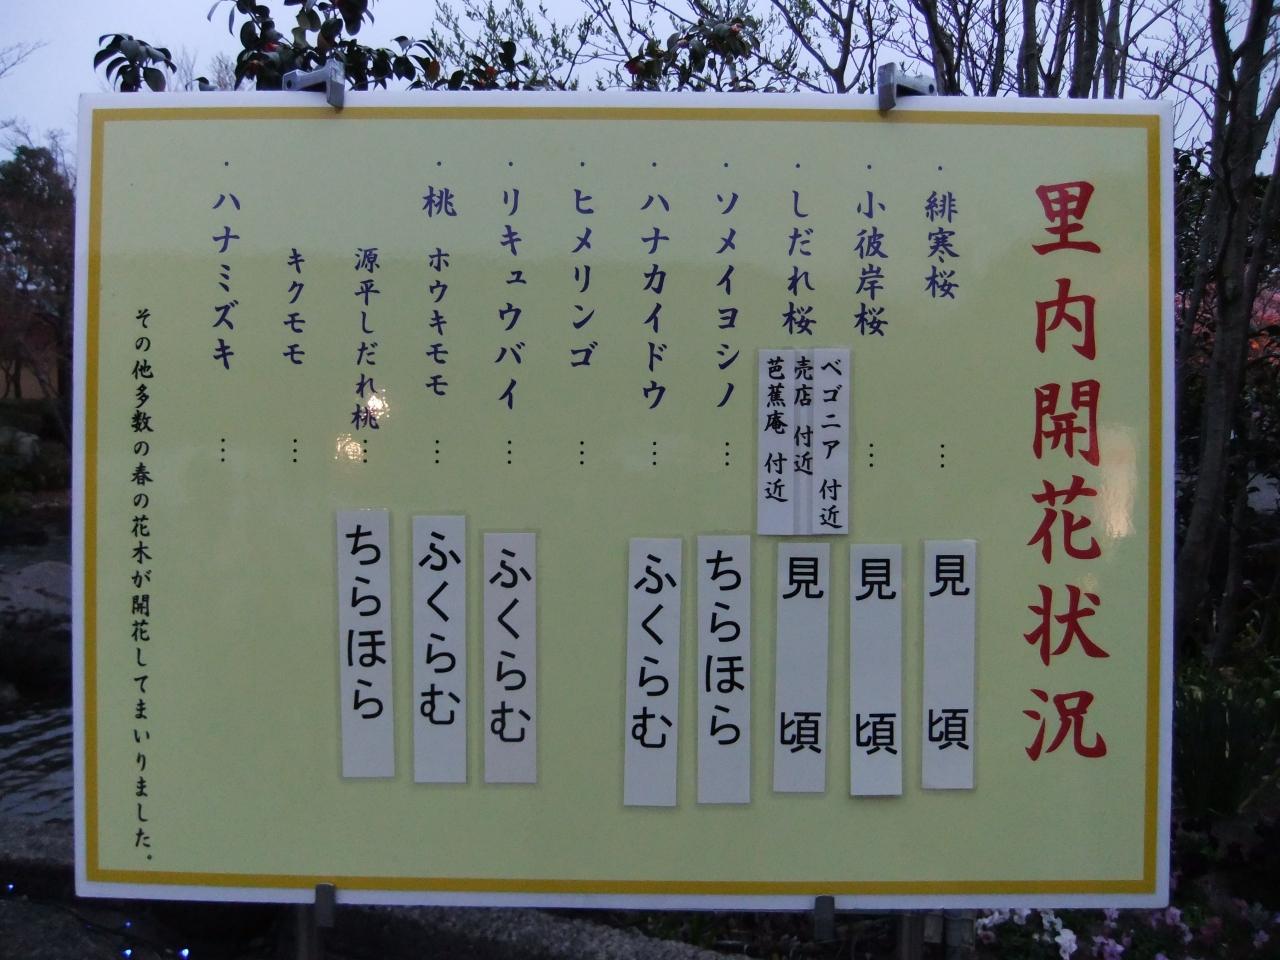 里内開花状況
・緋寒桜 … 見頃
・小彼岸桜 … 見頃
・しだれ桜 見頃
ベゴニア 付近
売店 付近
芭蕉庵 付近
・ソメイヨシノ … ちらほら
・ハナカイドウ … ふくらむ
・ヒメリンゴ …
・リキュウバイ … ふくらむ
・桃 ホウキモモ … ふくらむ
源平しだれ桃 … ちらほら
キクモモ …
・ハナミズキ …
その他多数の春の花木が開花してまいりました。